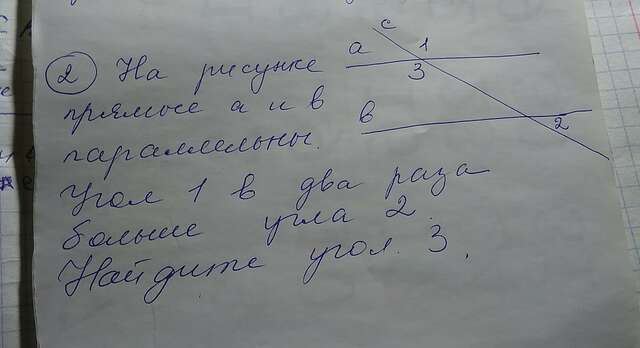 2 На рисунке
прямые а и в
параллельны.
Угол 1 в два раза
больше угла 2.
Найдите угол. 3.
c
a
1
3
в
2